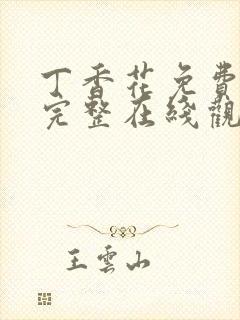 丁香花免费
完整在綫觀
王雲山